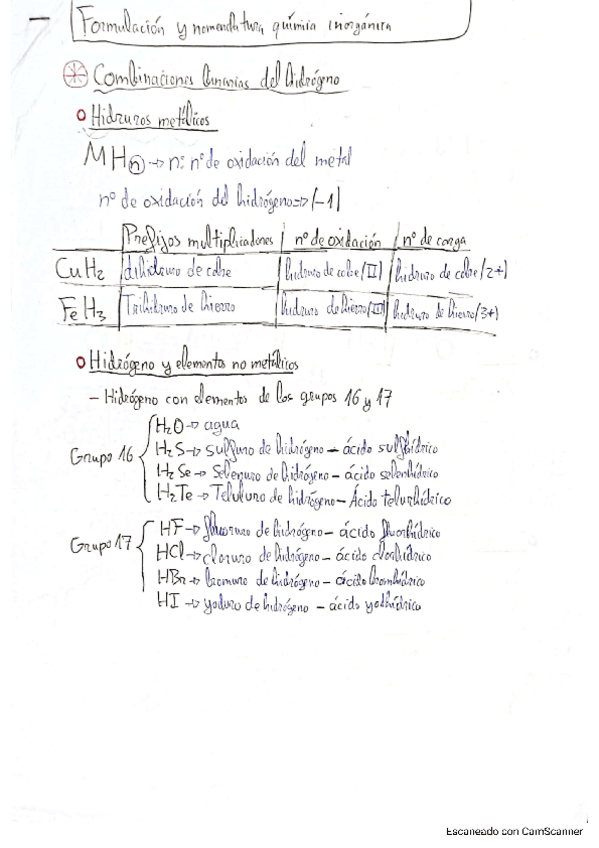 Formulación y nomenclatura química inorgánica
Combinaciones binarias del hidrógeno
Hidruros metálicos
MHn → n: nº de oxidación del metal
nº de oxidación del hidrógeno => (-1)
Prefijos multiplicadores | nº de oxidación | nº de carga
CuH2 | dihidruro de cobre | hidruro de cobre (II) | hidruro de cobre (2+)
FeH3 | Trihidruro de hierro | hidruro de hierro (III) | hidruro de hierro (3+)
Hidrógeno y elementos no metálicos
- Hidrógeno con elementos de los grupos 16 y 17
Grupo 16
H2O → agua
H2S → sulfuro de hidrógeno - ácido sulfhídrico
H2Se → Selenuro de hidrógeno - ácido selenhídrico
H2Te → Teluluro de hidrógeno - Ácido telurhídrico
Grupo 17
HF → fluoruro de hidrógeno - ácido fluorhídrico
HCl → cloruro de hidrógeno - ácido clorhídrico
HBr → bromuro de hidrógeno - ácido bromhídrico
HI → yoduro de hidrógeno - ácido yodhídrico
Escaneado con CamScanner